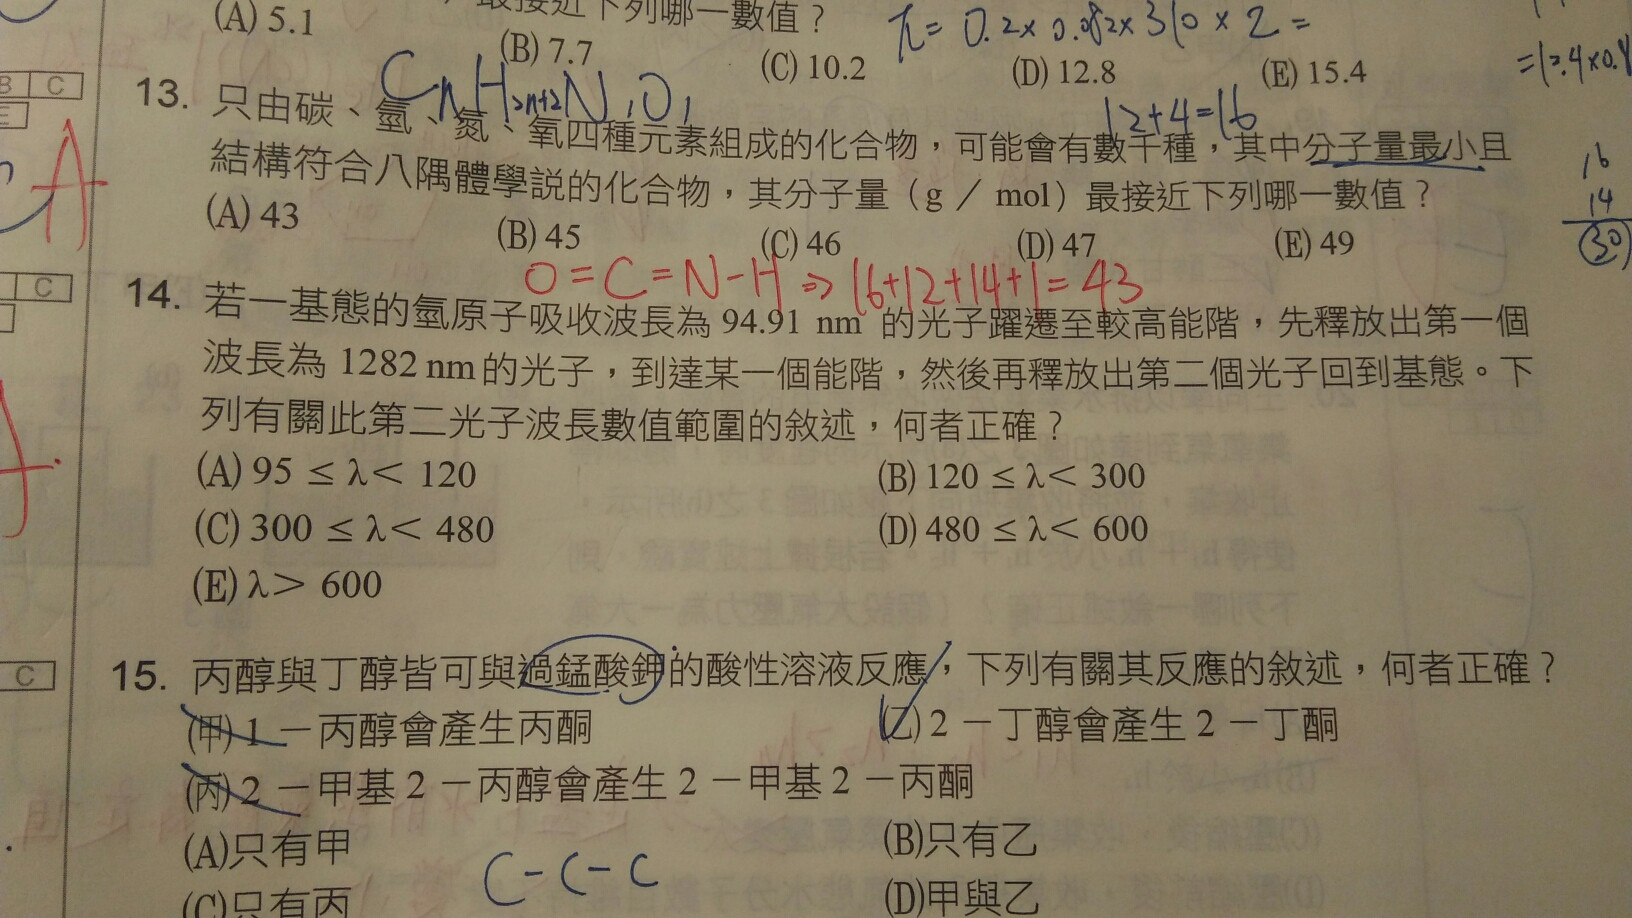 ，最接近下列哪一數值？
(A) 5.1 (B) 7.7 (C) 10.2 (D) 12.8 (E) 15.4
π = 0.2 × 0.082 × 310 × 2 =
= 12.4 × 0.8
CnH2n+2N1O1
12+4=16
13. 只由碳、氫、氮、氧四種元素組成的化合物，可能會有數千種，其中分子量最小且
結構符合八隅體學説的化合物，其分子量（g／mol）最接近下列哪一數值？
(A) 43 (B) 45 (C) 46 (D) 47 (E) 49
16
14
30
O=C=N-H ⇒ 16+12+14+1=43
14. 若一基態的氫原子吸收波長為 94.91 nm 的光子躍遷至較高能階，先釋放出第一個
波長為 1282 nm 的光子，到達某一個能階，然後再釋放出第二個光子回到基態。下
列有關此第二光子波長數值範圍的敘述，何者正確？
(A) 95 ≤ λ< 120 (B) 120 ≤ λ< 300
(C) 300 ≤ λ< 480 (D) 480 ≤ λ< 600
(E) λ> 600
15. 丙醇與丁醇皆可與過錳酸鉀的酸性溶液反應，下列有關其反應的敘述，何者正確？
(甲) 1－丙醇會產生丙酮 (乙) 2－丁醇會產生 2－丁酮
(丙) 2－甲基 2－丙醇會產生 2－甲基 2－丙酮
(A)只有甲 (B)只有乙
C-C-C
(C)只有丙 (D)甲與乙
B C
E
A
C
C